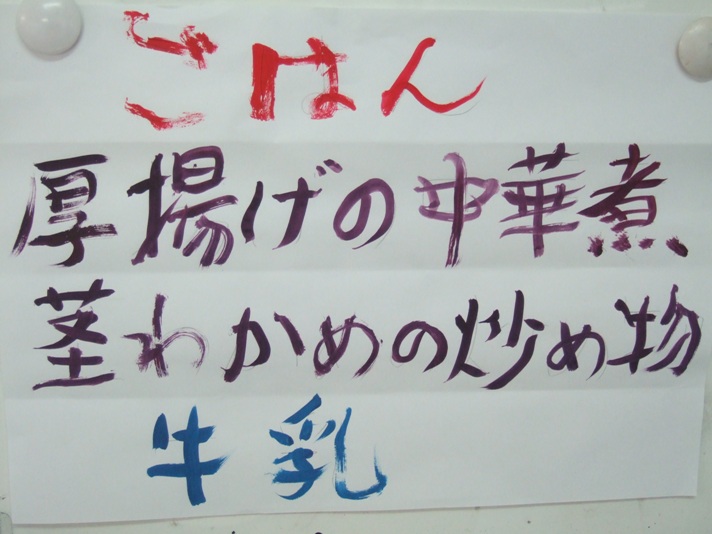 ごはん
厚揚げの中華煮
茎わかめの炒め物
牛乳